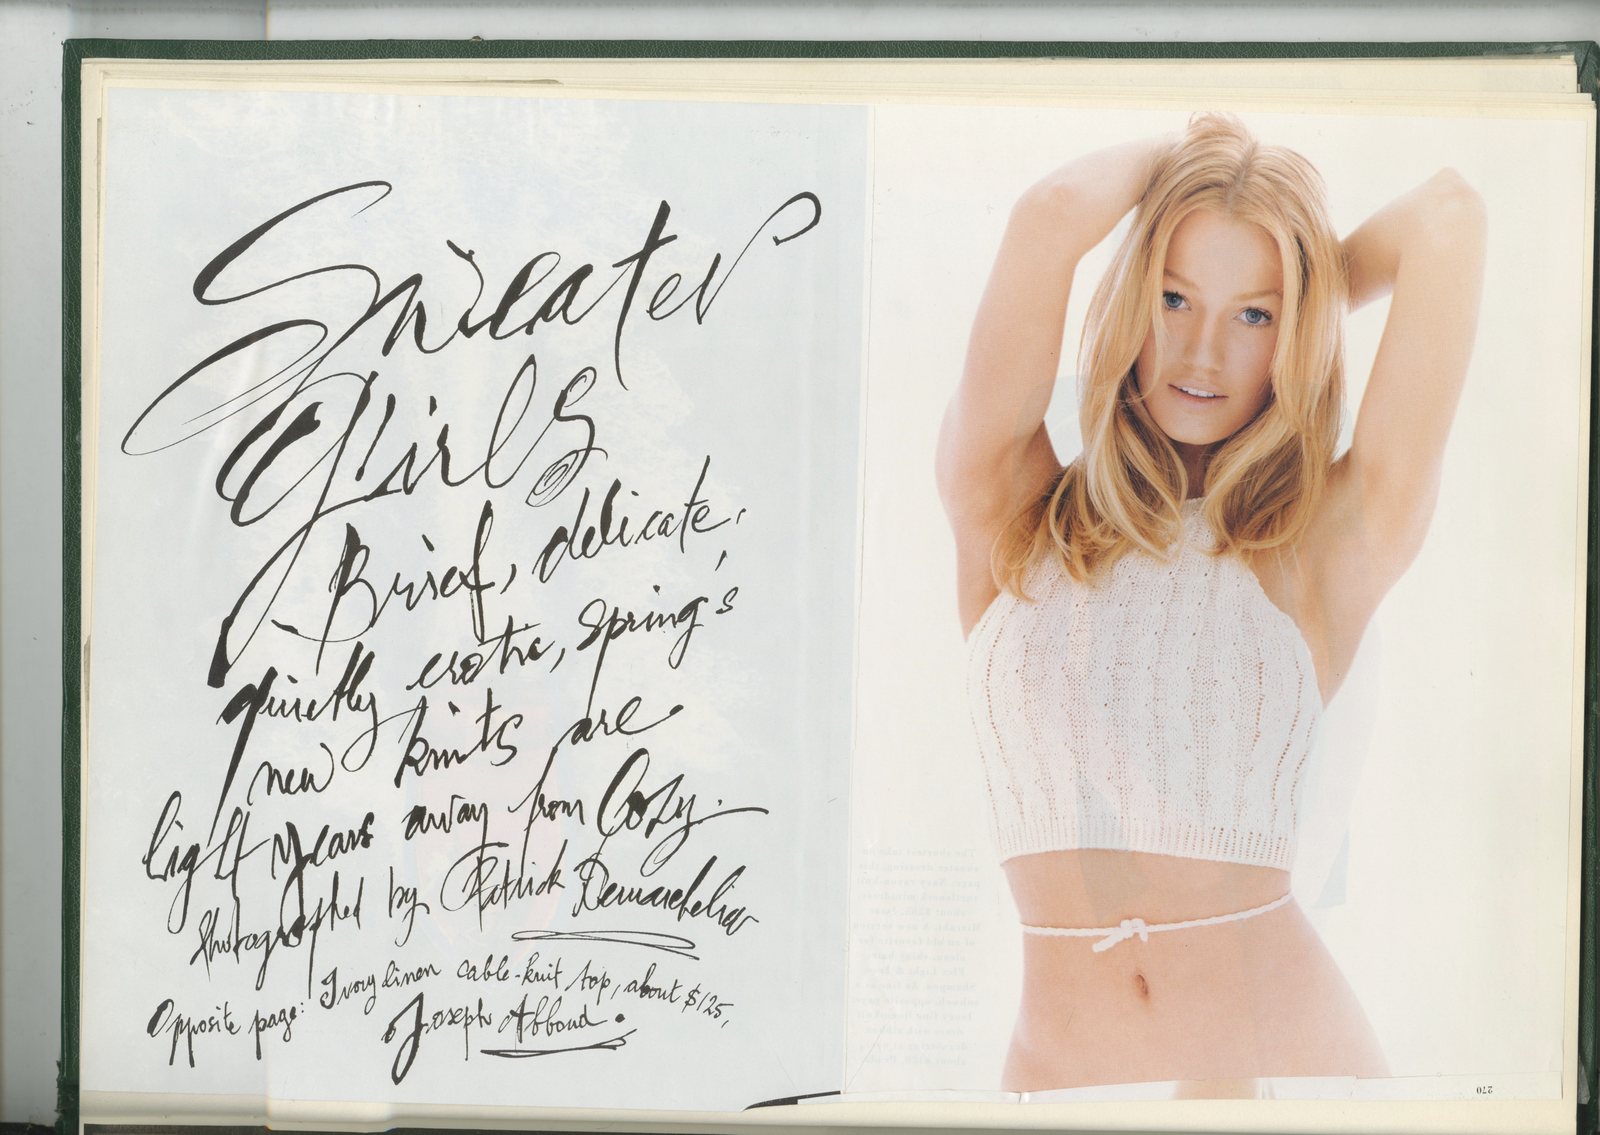 Sweater
Girls
Brief, delicate,
quietly erotic, Spring's
new knits are
light years away from Cozy.
Photographed by Patrick Demarchelier
Opposite page: Ivory linen cable-knit top, about $125,
Joseph Abboud.
270